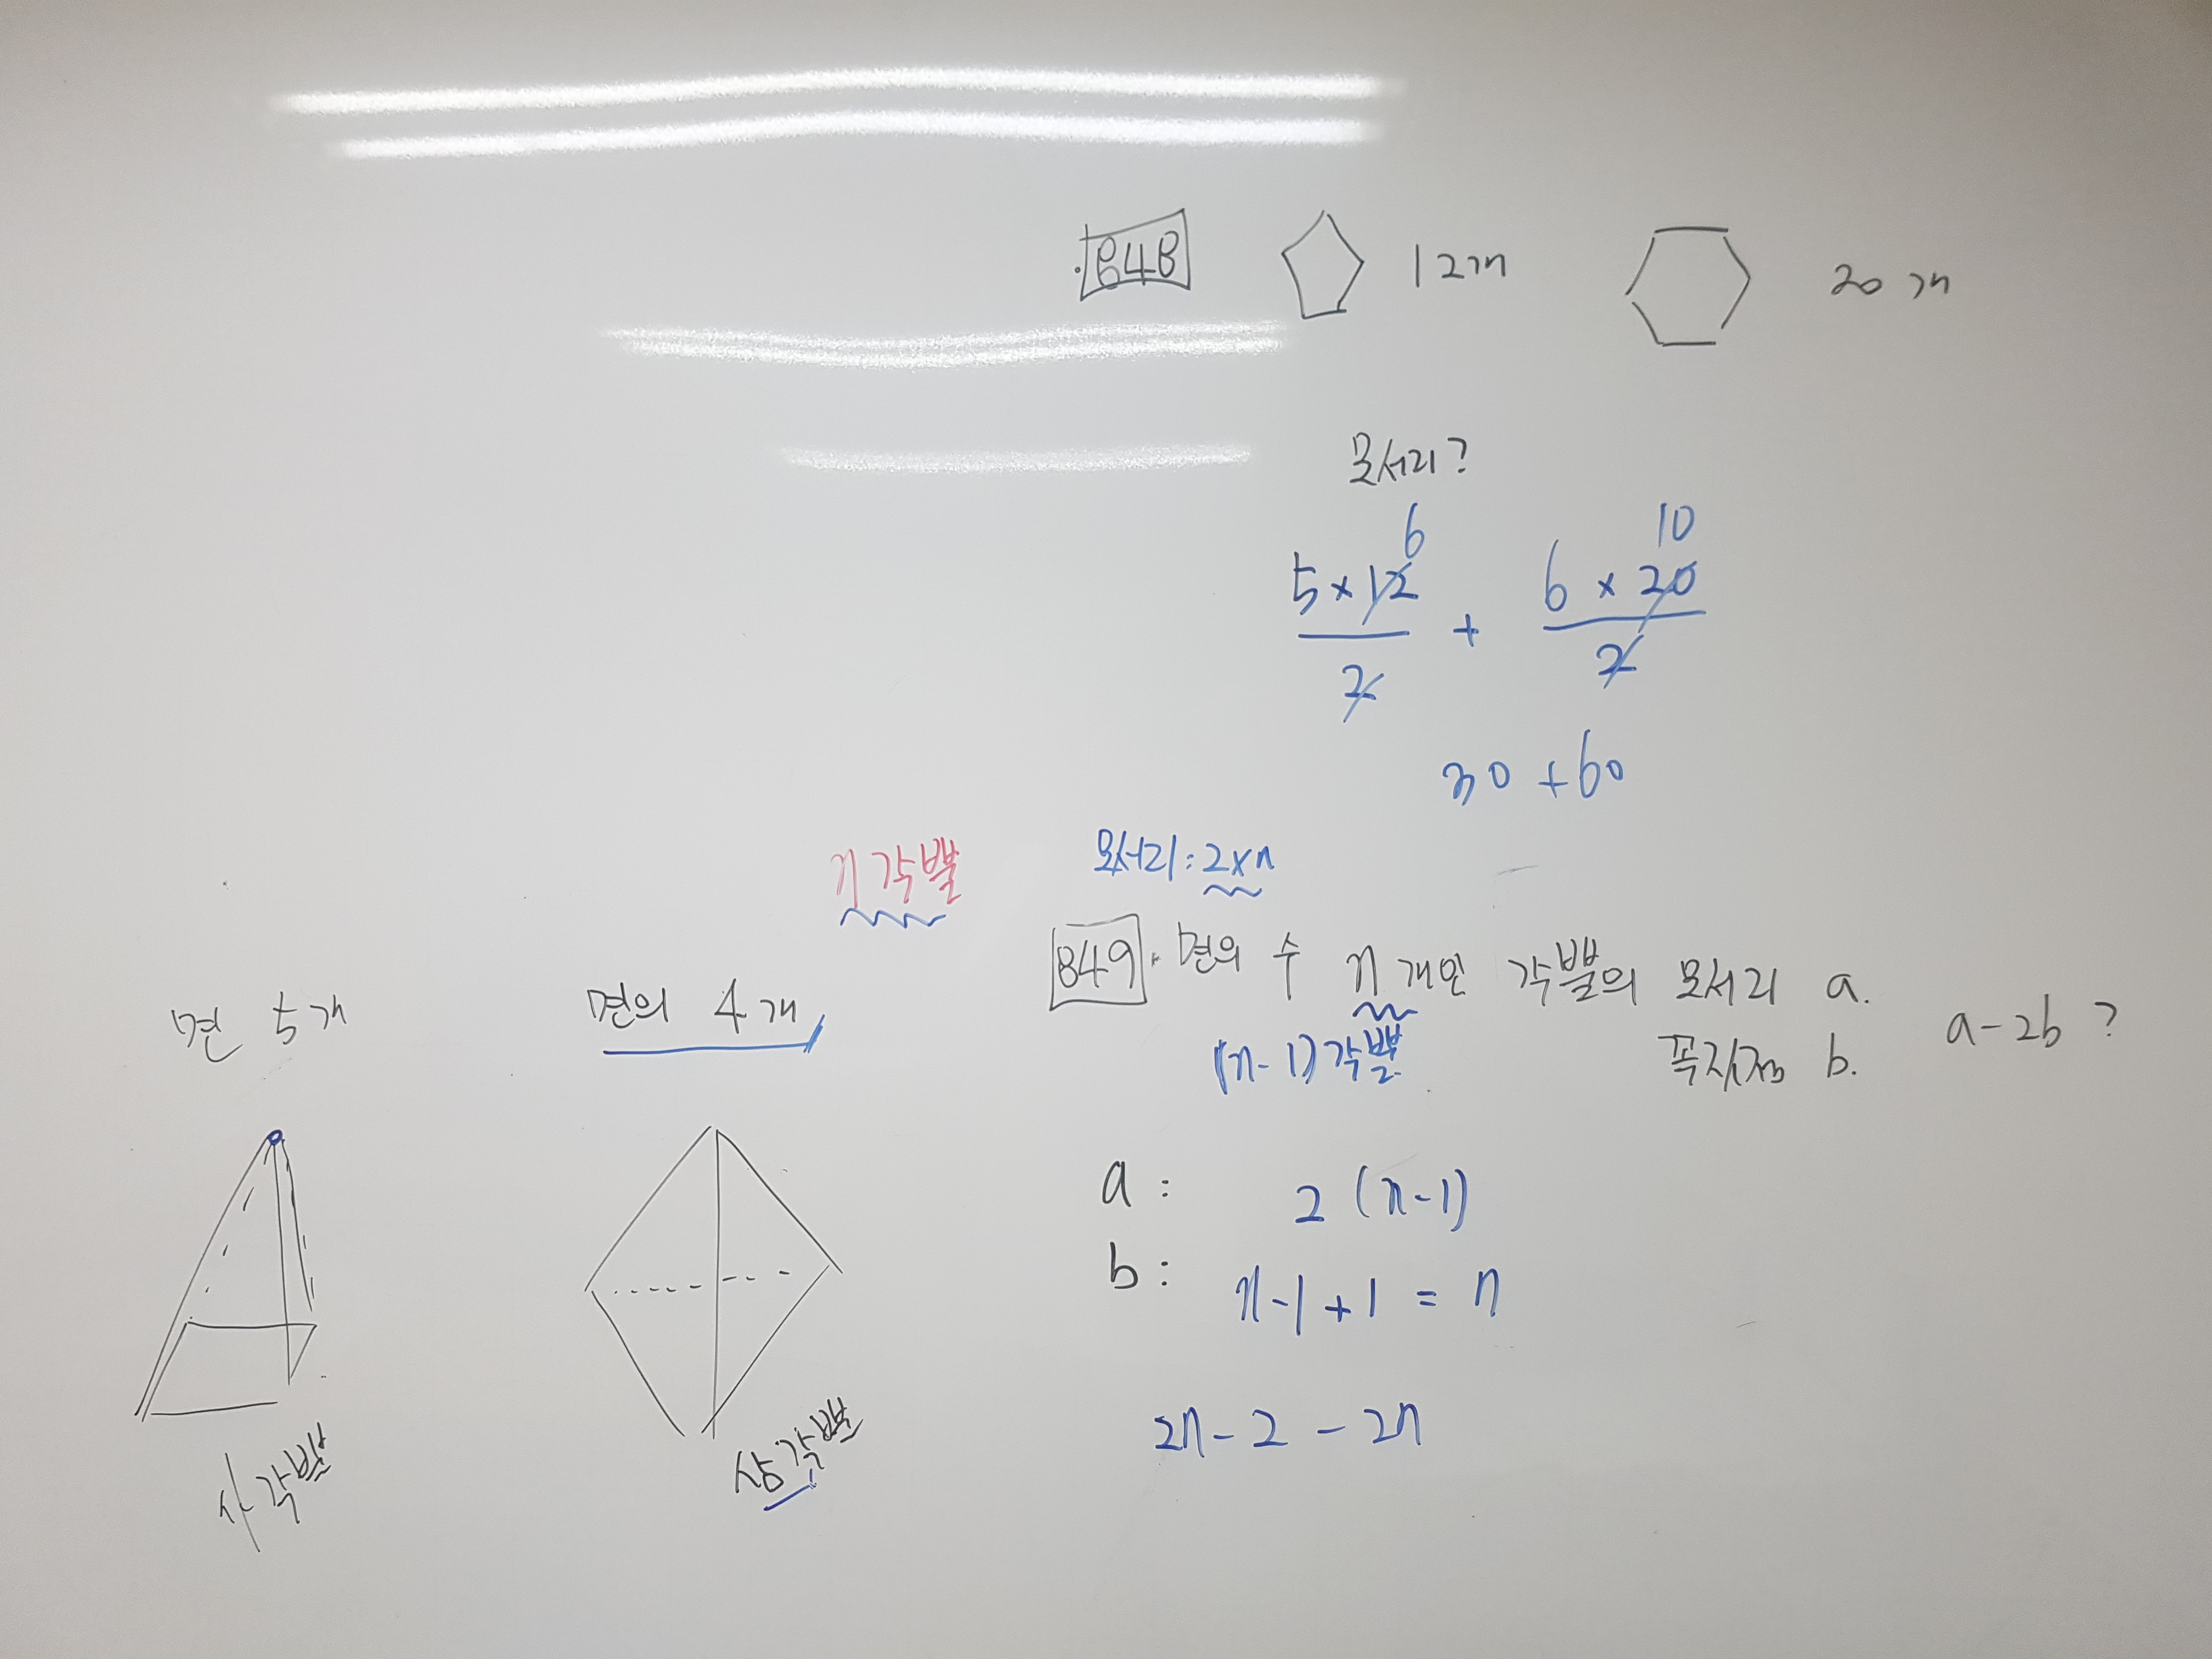 848 12개 20개
모서리?
6 10
5×12 + 6×20
2 2
30+60
n각뿔 모서리: 2×n
849. 면의 수 n개인 각뿔의 모서리 a.
(n-1)각뿔 꼭지점 b.
a-2b?
면 5개
면의 4개
a: 2(n-1)
b: n-1+1=n
2n-2-2n
사각뿔
삼각뿔